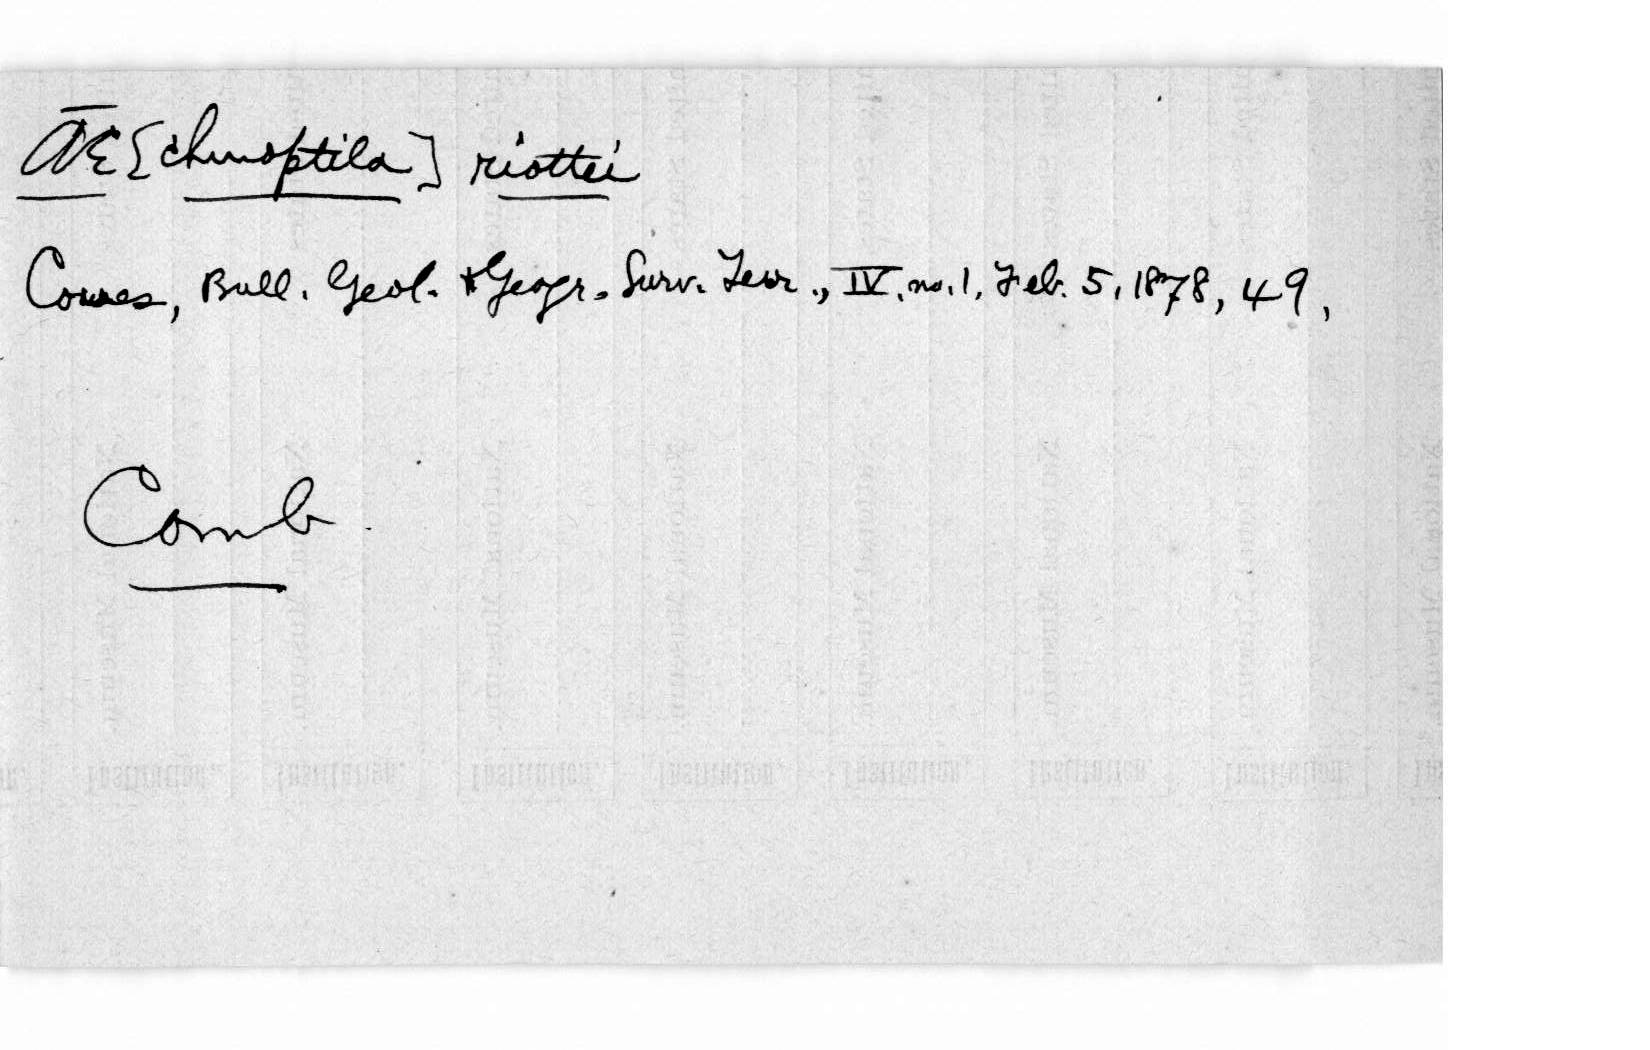 Æ[chmoptila] riottei
Coues, Bull. Geol. & Geogr. Surv. Terr., IV. no. 1, Feb. 5, 1878, 49,
Comb.